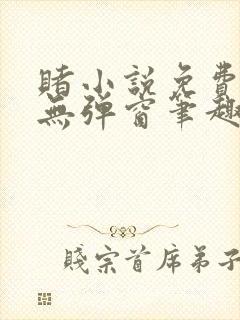 賭小説免費
無彈窗筆趣
賤宗首席弟子